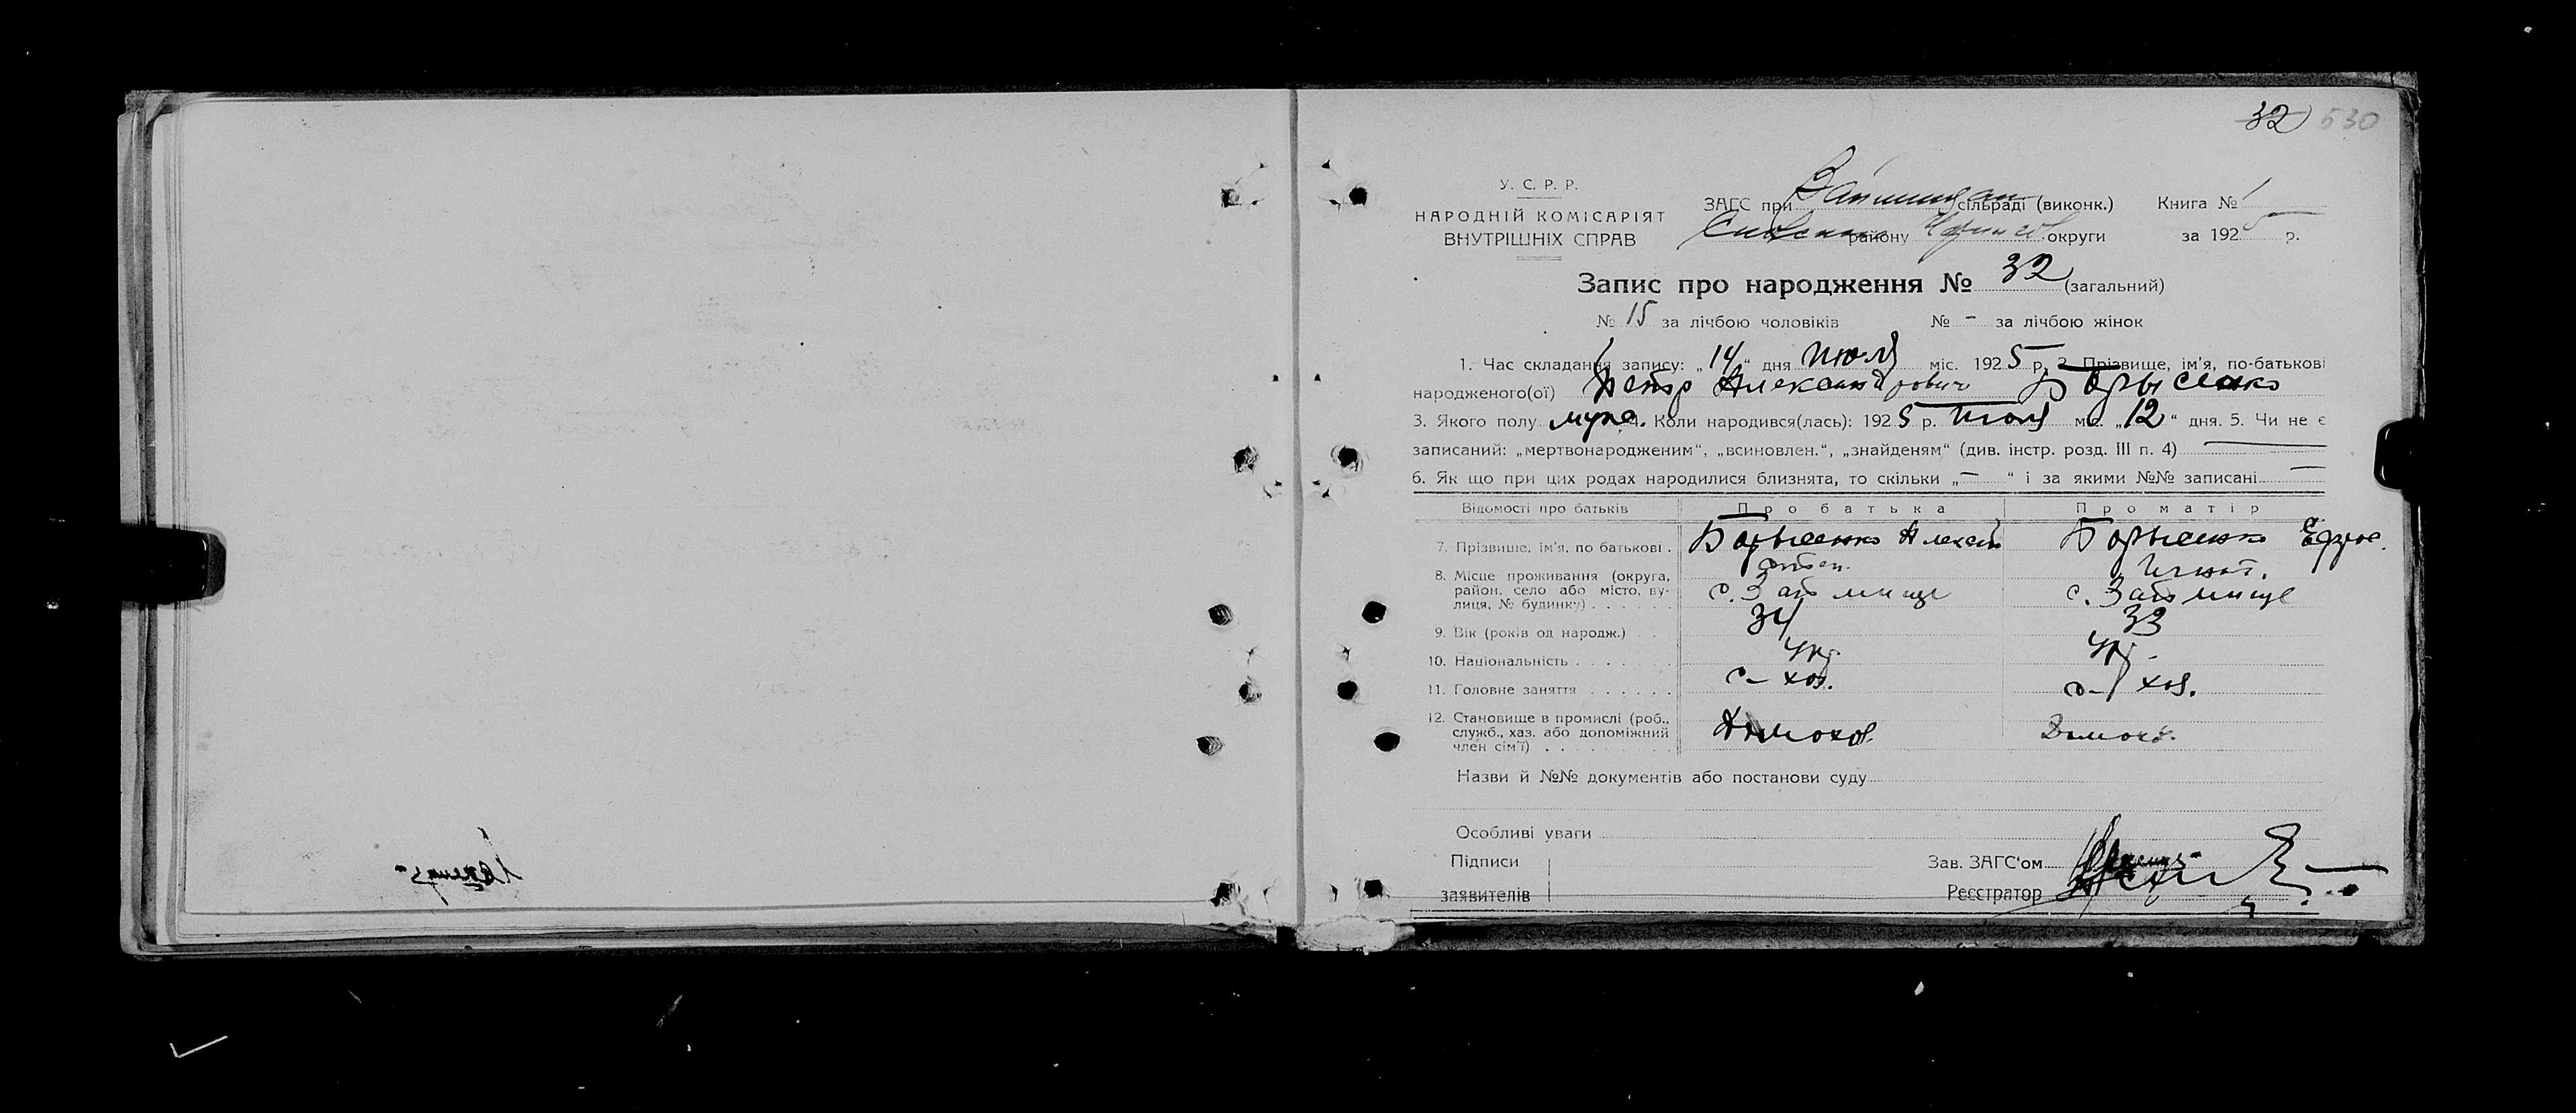 32 530
У. С. Р. Р.
НАРОДНІЙ КОМІСАРІЯТ
ВНУТРІШНІХ СПРАВ
ЗАГС при сільраді (виконк.) Книга № 1
району округи за 1925 р.
Запис про народження № 32 (загальний)
№ 15 за лічбою чоловіків № - за лічбою жінок
1. Час складання запису: „14“ дня июля міс. 1925 р. 2. Прізвище, ім'я, по-батькові
народженого(ої) Петр Александрович Борысенко
3. Якого полу муж. 4. Коли народився(лась): 1925 р. июля міс. „12“ дня. 5. Чи не є
записаний: „мертвонародженим“, „всиновлен.“, „знайденям“ (див. інстр. розд. III п. 4) —
6. Як що при цих родах народилися близнята, то скільки „—“ і за якими №№ записані —
Відомості про батьків Про батька Про матір
7. Прізвище, ім'я, по батькові . Борысенко Борысенко
Игнат.
8. Місце проживання (округа, район, село або місто, вулиця, № будинку) . . . . . . с. Затишще с. Затишще
9. Вік (років од народж.) . . 34 33
10. Національність . . . . . . укр. укр.
11. Головне заняття . . . . . . с-хоз. с-хоз.
12. Становище в промислі (роб., служб., хаз. або допоміжний член сім'ї) . . . . . . . . . Домохоз. Домохоз.
Назви й №№ документів або постанови суду
Особливі уваги
Підписи
заявителів
Зав. ЗАГС'ом
Реєстратор